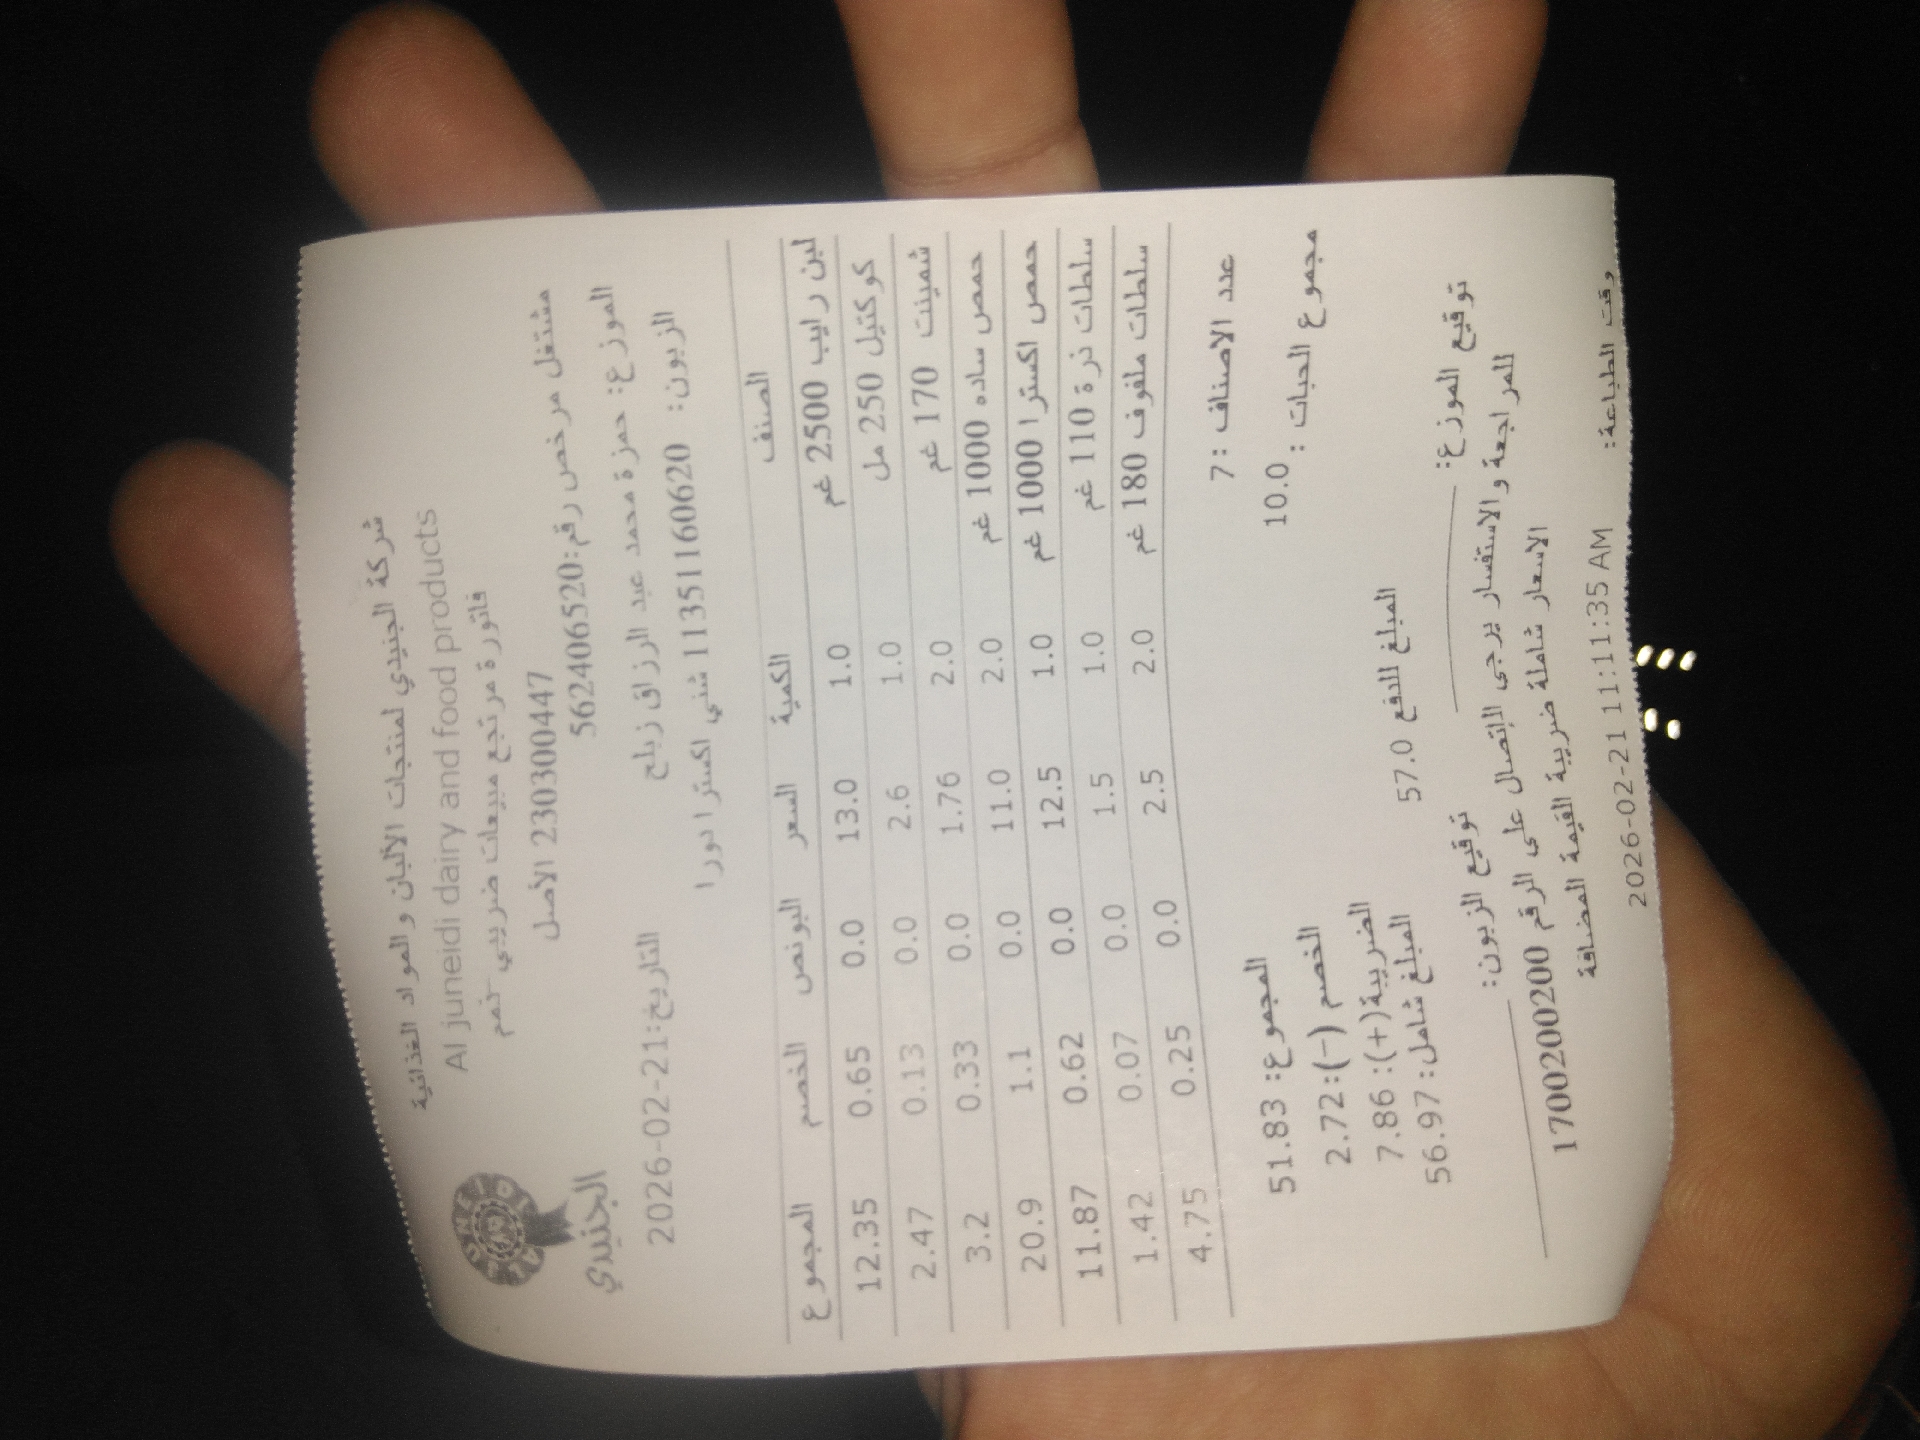 شركة الجنيدي لمنتجات الألبان والمواد الغذائية
Al juneidi dairy and food products
فاتورة مرتجع مبيعات ضريبي
JUNEIDI
الجنيدي
230300447 الأصل
مشتغل مرخص رقم:562406520
الموزع: حمزة محمد عبد الرزاق زبلح
التاريخ:2026-02-21
الزبون: 11351160620 شني اكسترا دورا
الصنف الكمية السعر البونص الخصم المجموع
لبن رايب 2500 غم 1.0 13.0 0.0 0.65 12.35
كوكتيل 250 مل 1.0 2.6 0.0 0.13 2.47
شمينت 170 غم 2.0 1.76 0.0 0.33 3.2
حمص ساده 1000 غم 2.0 11.0 0.0 1.1 20.9
حمص اكسترا 1000 غم 1.0 12.5 0.0 0.62 11.87
سلطات ذرة 110 غم 1.0 1.5 0.0 0.07 1.42
سلطات ملفوف 180 غم 2.0 2.5 0.0 0.25 4.75
عدد الاصناف : 7
المجموع: 51.83
مجموع الحبات : 10.0
الخصم (-): 2.72
الضريبة(+): 7.86
المبلغ للدفع 57.0
المبلغ شامل: 56.97
توقيع الموزع:
توقيع الزبون:
للمراجعة والاستفسار يرجى الإتصال على الرقم 1700200200
الاسعار شاملة ضريبة القيمة المضافة
وقت الطباعة: 2026-02-21 11:11:35 AM